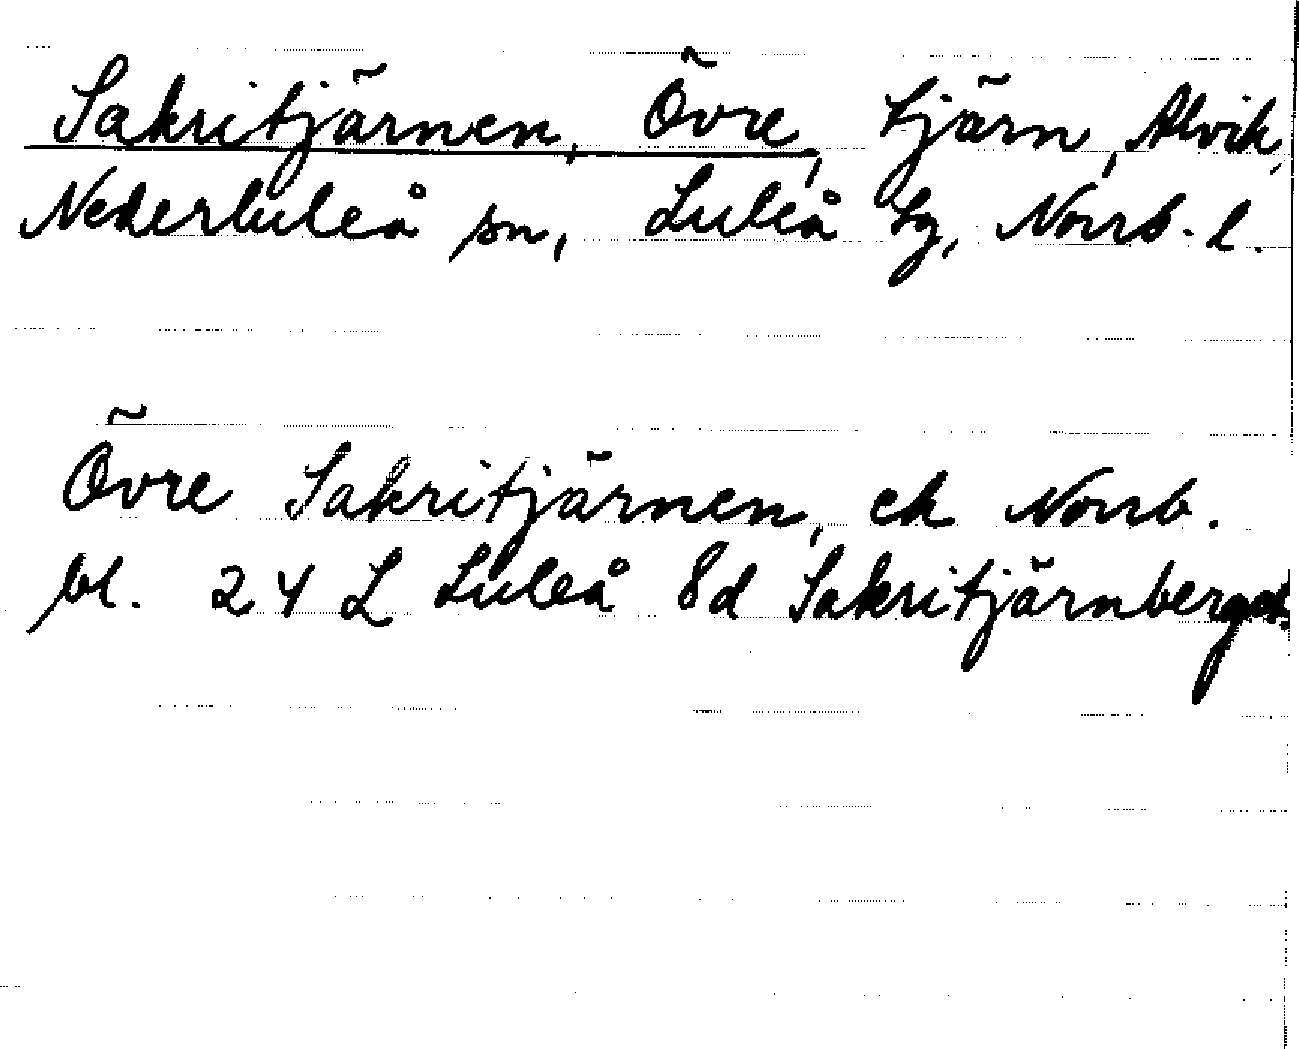 Sakritjärnen, Övre, tjärn, Alvik,
Nederluleå sn, Luleå tg, Norrb. l.
Övre Sakritjärnen, ek Norrb.
bl. 24 L Luleå 8d Sakritjärnberget.